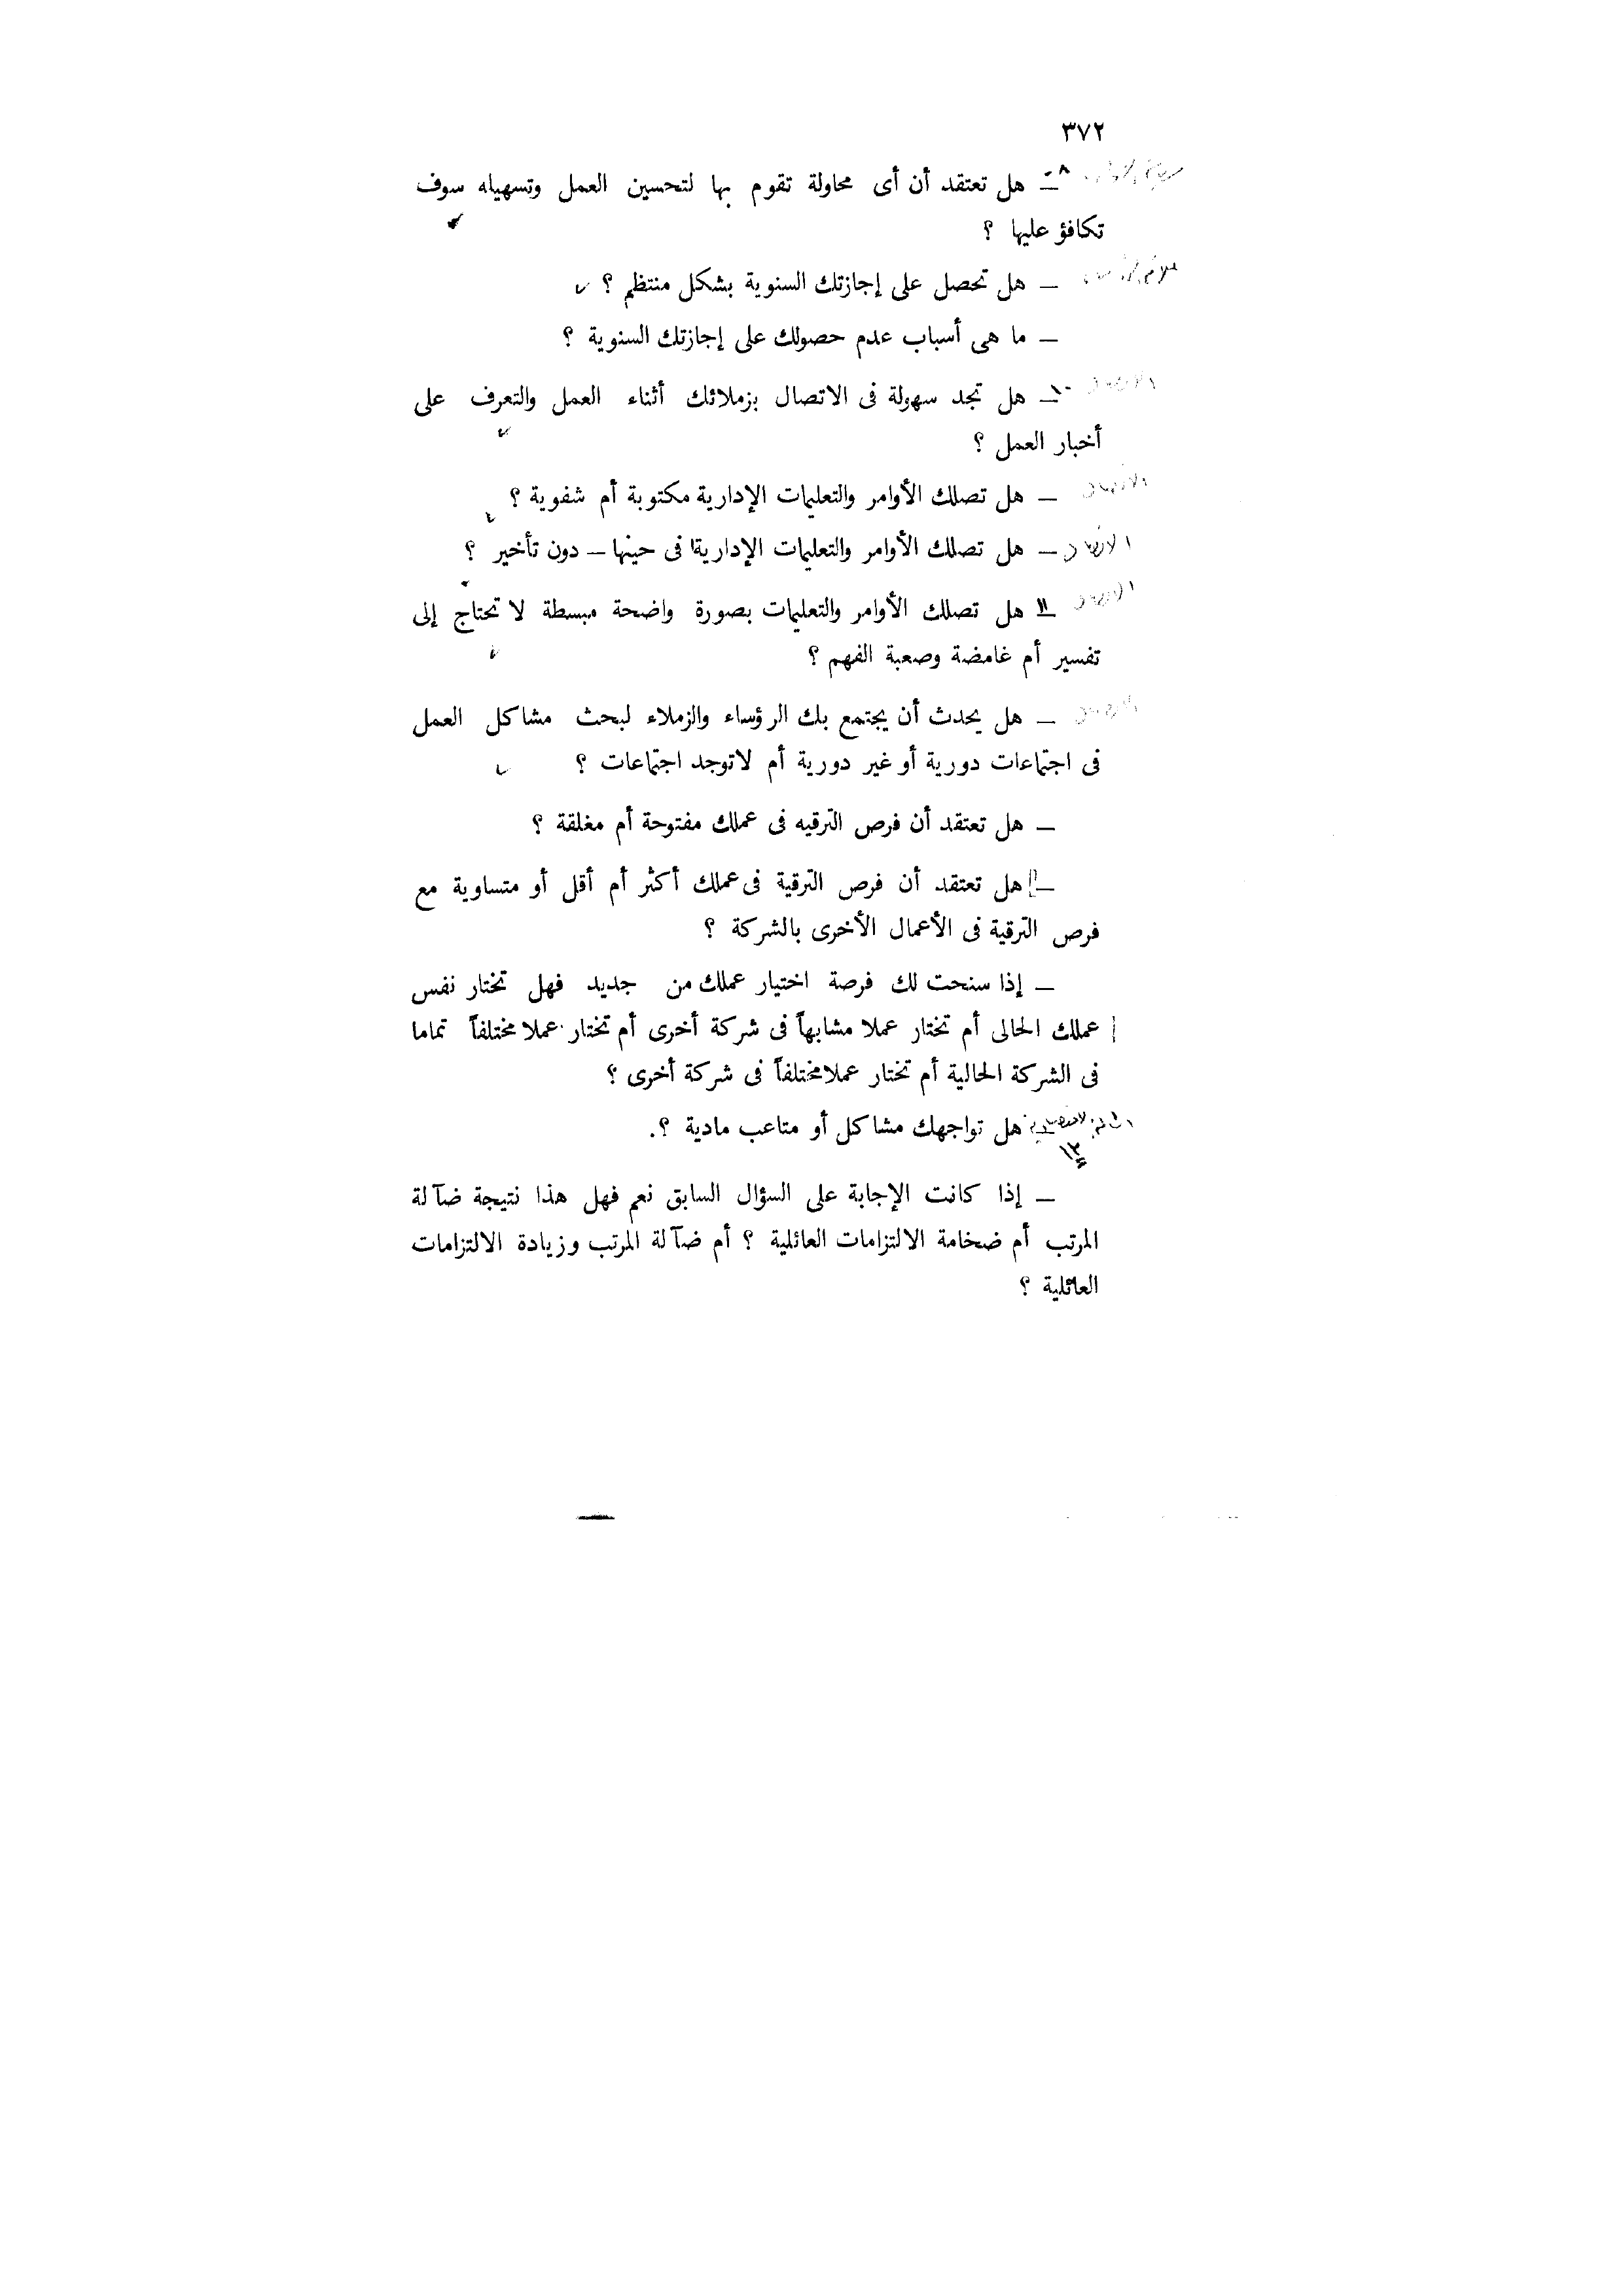 ٣٧٢
٨ — هل تعتقد أن أى محاولة تقوم بها لتحسين العمل وتسهيله سوف
تكافؤ عليها ؟
— هل تحصل على إجازتك السنوية بشكل منتظم ؟
— ما هى أسباب عدم حصولك على إجازتك السنوية ؟
١٠ — هل تجد سهولة فى الاتصال بزملائك أثناء العمل والتعرف على
أخبار العمل ؟
— هل تصلك الأوامر والتعليمات الإدارية مكتوبة أم شفوية ؟
الاتصال — هل تصلك الأوامر والتعليمات الإدارية فى حينها — دون تأخير ؟
١١ — هل تصلك الأوامر والتعليمات بصورة واضحة مبسطة لا تحتاج إلى
تفسير أم غامضة وصعبة الفهم ؟
— هل يحدث أن يجتمع بك الرؤساء والزملاء لبحث مشاكل العمل
فى اجتماعات دورية أو غير دورية أم لا توجد اجتماعات ؟
— هل تعتقد أن فرص الترقيه فى عملك مفتوحة أم مغلقة ؟
— هل تعتقد أن فرص الترقية فى عملك أكثر أم أقل أو متساوية مع
فرص الترقية فى الأعمال الأخرى بالشركة ؟
— إذا سنحت لك فرصة اختيار عملك من جديد فهل تختار نفس
عملك الحالى أم تختار عملا مشابهاً فى شركة أخرى أم تختار عملا مختلفاً تماما
فى الشركة الحالية أم تختار عملا مختلفاً فى شركة أخرى ؟
هل تواجهك مشاكل أو متاعب مادية ؟.
١٢
— إذا كانت الإجابة على السؤال السابق نعم فهل هذا نتيجة ضآلة
المرتب أم ضخامة الالتزامات العائلية ؟ أم ضآلة المرتب وزيادة الالتزامات
العائلية ؟